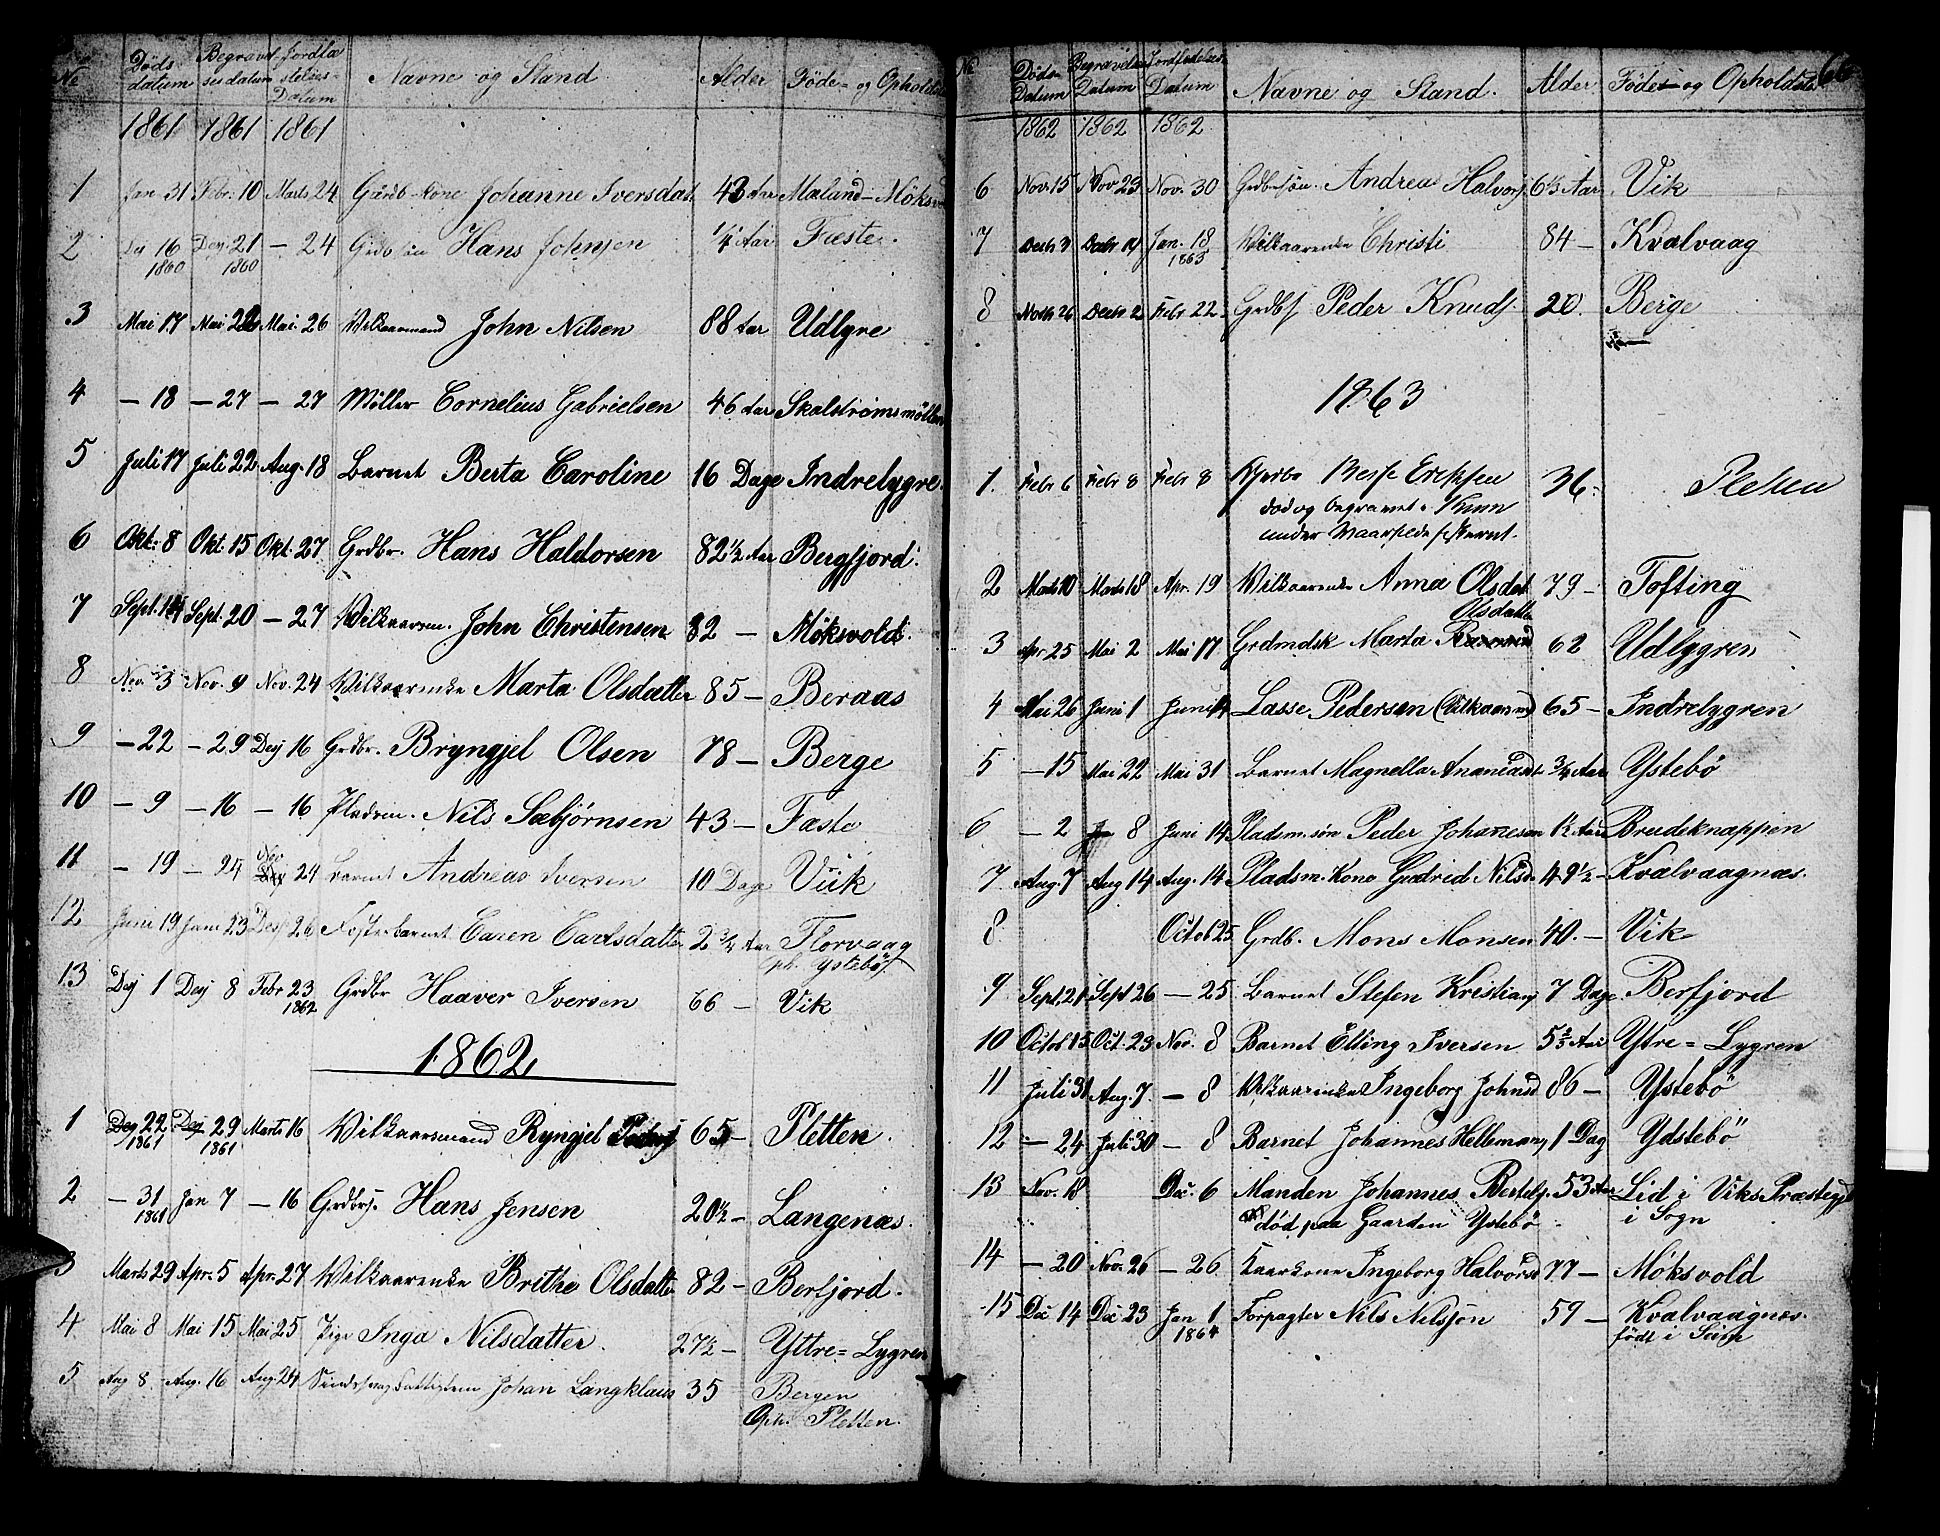 No Døds datum Begravelsesdatum Jordfæstelses-Datum Navne og Stand Alder Føde- og Opholdst
1861 1861 1861
1 Jan 31 Febr. 10 Marts 24 Gårdb. kone Johanne Iversdat 43 Aar Mælund - Møksv
2 16 1860 21 1860 — 24 Grdb. søn Hans Johnsen 1/4 Aar Fæste.
3 Mai 17 Mai 22 Mai 26 Vilkaarmand John Nilsen 88 Aar Udlyre
4 — 18 — 27 — 27 Møller Cornelius Gabrielsen 46 Aar Skalstrømsmøllen
5 Juli 17 Juli 22 Aug. 18 Barnet Berta Caroline 16 Dage Indrelygre.
6 Okt. 8 Okt. 15 Okt. 27 Grdbr. Hans Haldorsen 82 1/2 Aar Bergfjord.
7 Sept. 14 Sept. 20 — 27 Vilkaarm. John Christensen 82 — Møksvold.
8 Nov. 3 Nov. 9 Nov. 24 Vilkaarenke Marta Olsdatter 85 — Beraas
9 — 22 — 29 Desj 16 Grdbr. Bryngjel Olsen 78 — Berge
10 — 9 — 16 — 16 Pladsm. Nils Sæbjørnsen 43 — Fæste
11 — 19 — 24 Nov 24 Barnet Andreas Iversen 10 Dage Viik
12 Juni 19 Juni 23 26 Fosterbarnet Caren Carlsdatter 2 3/4 Aar Florvaag
Oph. Ystebø
13 Desj 1 Desj 8 Febr 23 1862 Grdbr Haaver Iversen 66 — Vik
1862
1 22 1861 29 1861 Marts 16 Vilkaarsmand Ryngjel 65 — Pletten.
2 — 31 1861 Jan 7 — 16 Grdbrs. Hans Jensen 20 1/2 — Langenæs.
3 Marts 29 Apr. 5 Apr. 27 Vilkaarenke Brithe Olsdatte 82 — Berfjord.
4 Mai 8 Mai 15 Mai 25 Pige Inga Nilsdatter. 27 1/2 — Yttre= Lygren
5 Aug 8 Aug. 16 Aug. 24 Johan Langklaus 35 Bergen
Oph. Pletten.
No Døds-Datum Begravelses Datum Jordfæstelses Datum Navne og Stand. Alder Føde- og Opholdste 66
1862 1862 1862
6 Nov. 15 Nov 23 Nov. 30 Grdbrsøn. Andreas Halvorsj 6 1/3 Aar Vik
7 Decbr 3 Decbr 14 Jan. 18 1863 Vilkaarenke Christi 84 — Kvalvaag
8 Novbr 26 Decbr 2 Febr 22 Grdbs Peder Knuds. 20. Berge
1863
1. Febr 6 Febr 8 Febr 8 36. Pletten
død og begravet i Kinn
under Vaarsildefiskeriet.
2 Marts 10 Marts 18 Apr. 19 Vilkaarenke Anna Olsdat 79 — Tofting
Olsdatter
3 Apr 25 Mai 2 Mai 17 Grdmdsk Marta 62 Udlygren
4 Mai 26 Juni 1 Juni 14 Lasse Pedersen (Vilkaarsmd 65 — Indrelygren
5 — 15 Mai 22 Mai 31 Barnet Magnella Ananiasdt 3/4 Aar Ystebø
6 — 2 8 Juni 14 Pladsm. søn Peder Johanesen 1 1/2 Aar Brudeknappen
7 Aug. 7 Aug 14 Aug. 14 Pladsm. Kone Gudrid Nilsd. 49 1/2 — Kvalvaagnæs.
8 Octob 25 Grdb. Mons Monsen 40. — Vik
9 Sept. 21 Sept 26 — 25 Barnet Stefen Kristiansj 7 Dage Berfjord
10 Octob 15 Oct. 23 Nov. 8 Barnet Elling Iversen 5 2/3 Aar Ytre= Lygren
11 Juli 31 Aug. 7. — 8 Vilkaarenke Ingeborg Johnsd 86 — Ystebø
12 — 24 Juli 30 — 8 Barnet Johannes Hellemansj 1 Dag Ydstebø
13 Nov. 18 Dec. 6 Manden Johannes Bertels. 53 Aar Lid i Viks Præstegjd
død paa Gaarden Ystebø i Sogn
14 — 20 Nov. 26 — 26 Kaarkone Ingeborg Halvorsd 77 — Møksvold
15 Dec 14 Dec. 23 Jan 1 1864 Forpagter Nils Nilsson 59 — Kvalvaagnæs.
født i